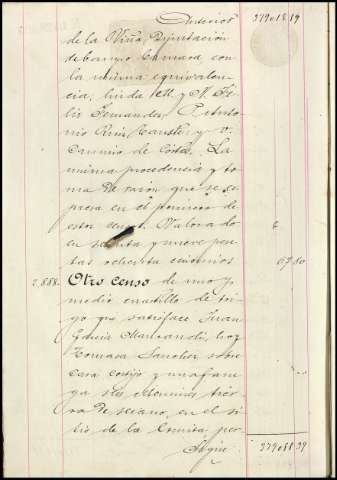 Anterior 379018.19
de la Viña, Diputación
de Campo Camara con
la misma equivalen-
cia, linda M. y N. Fe-
lix Fernandez, P. Anto-
nio Ruiz y
Camino de . La
misma procedencia y to-
ma de razon que se ex-
presa en el primero de
estos censos. Valorado
en sesenta y nueve pese-
tas ochenta centimos 69.80
2.888. Otro censo de uno y
medio cuartillo de tri-
go que satisface Juan
Garcia hoy
Tomasa Sanchez sobre
casa cortijo y una fane-
ga seis celemines tier-
ra de secano, en el si-
tio de la Ermita, per-
Sigue 379088.39